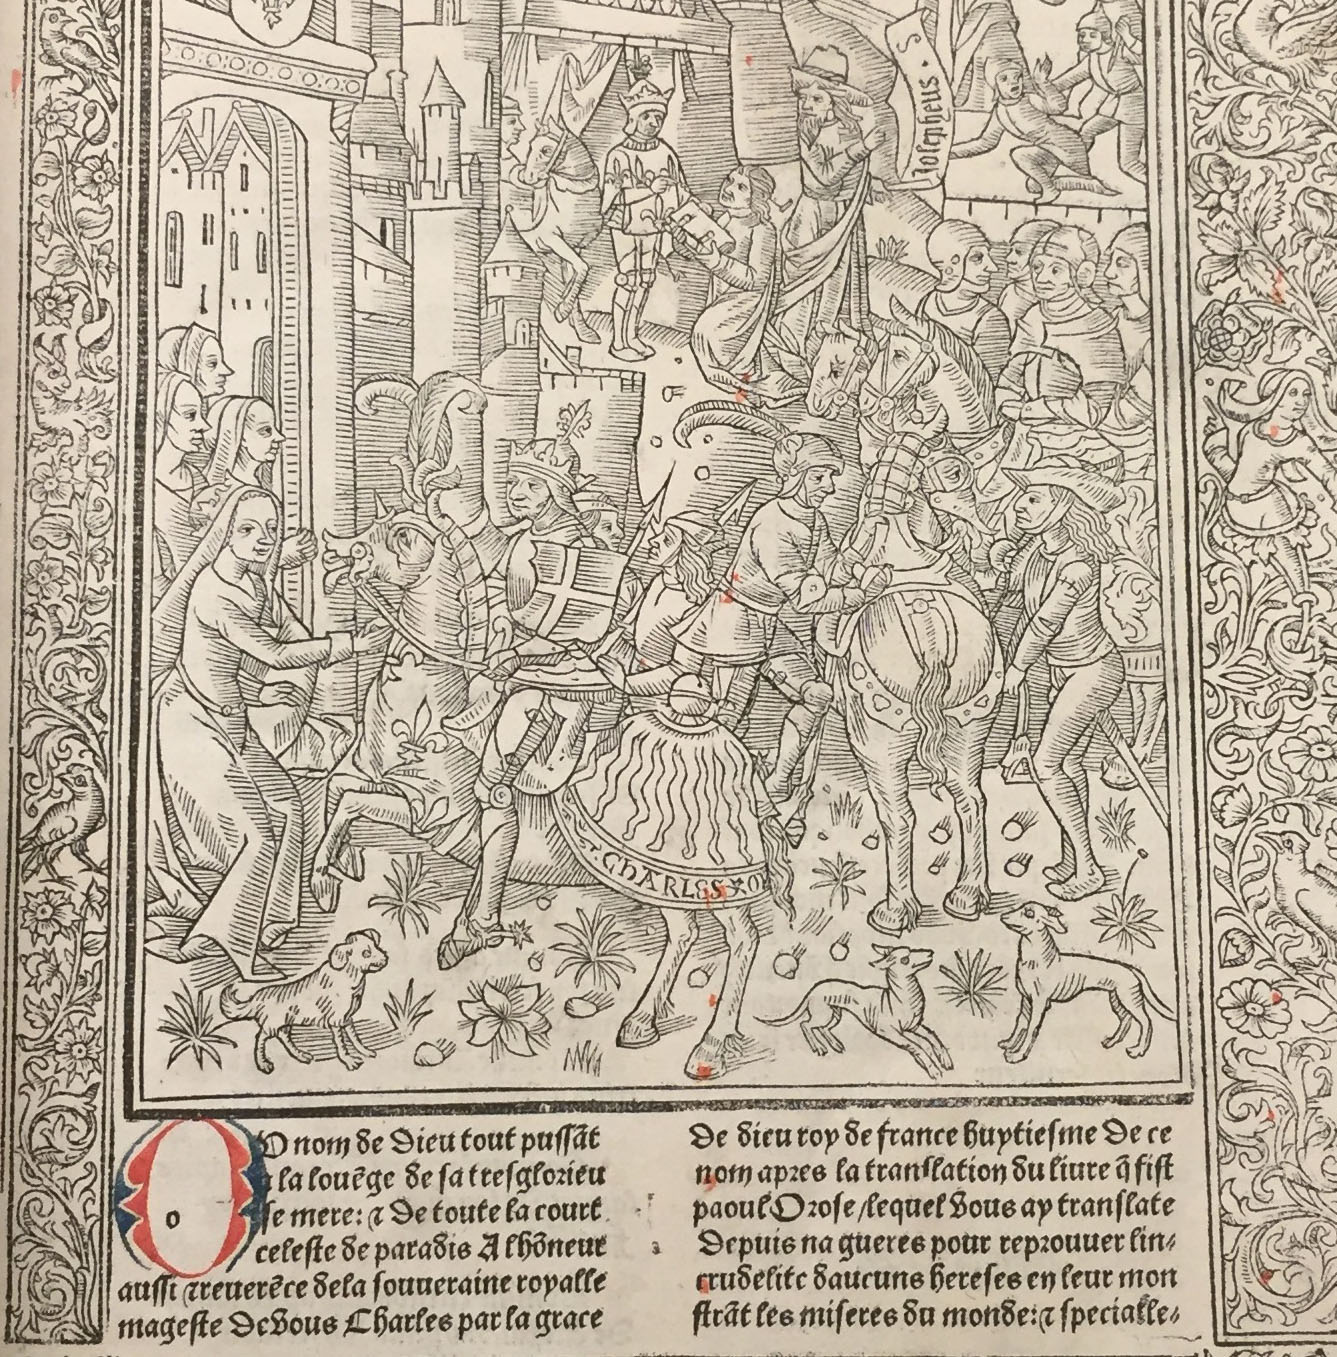 Iosepheus · S
CHARLES
O nom de Dieu tout pussāt
a la louēge de sa tresglorieu
se mere: ⁊ De toute la court
celeste de paradis A lhōneur
aussi ⁊reuerēce dela souueraine royalle
mageste De vous Charles par la grace
De dieu roy de france huytiesme De ce
nom apres la translation du liure q̄ fist
paoul Orose/lequel vous ay translate
Depuis na gueres pour reprouuer lin⸗
crudelite daucuns hereses en leur mon
strāt les miseres du monde:⁊ specialle⸗